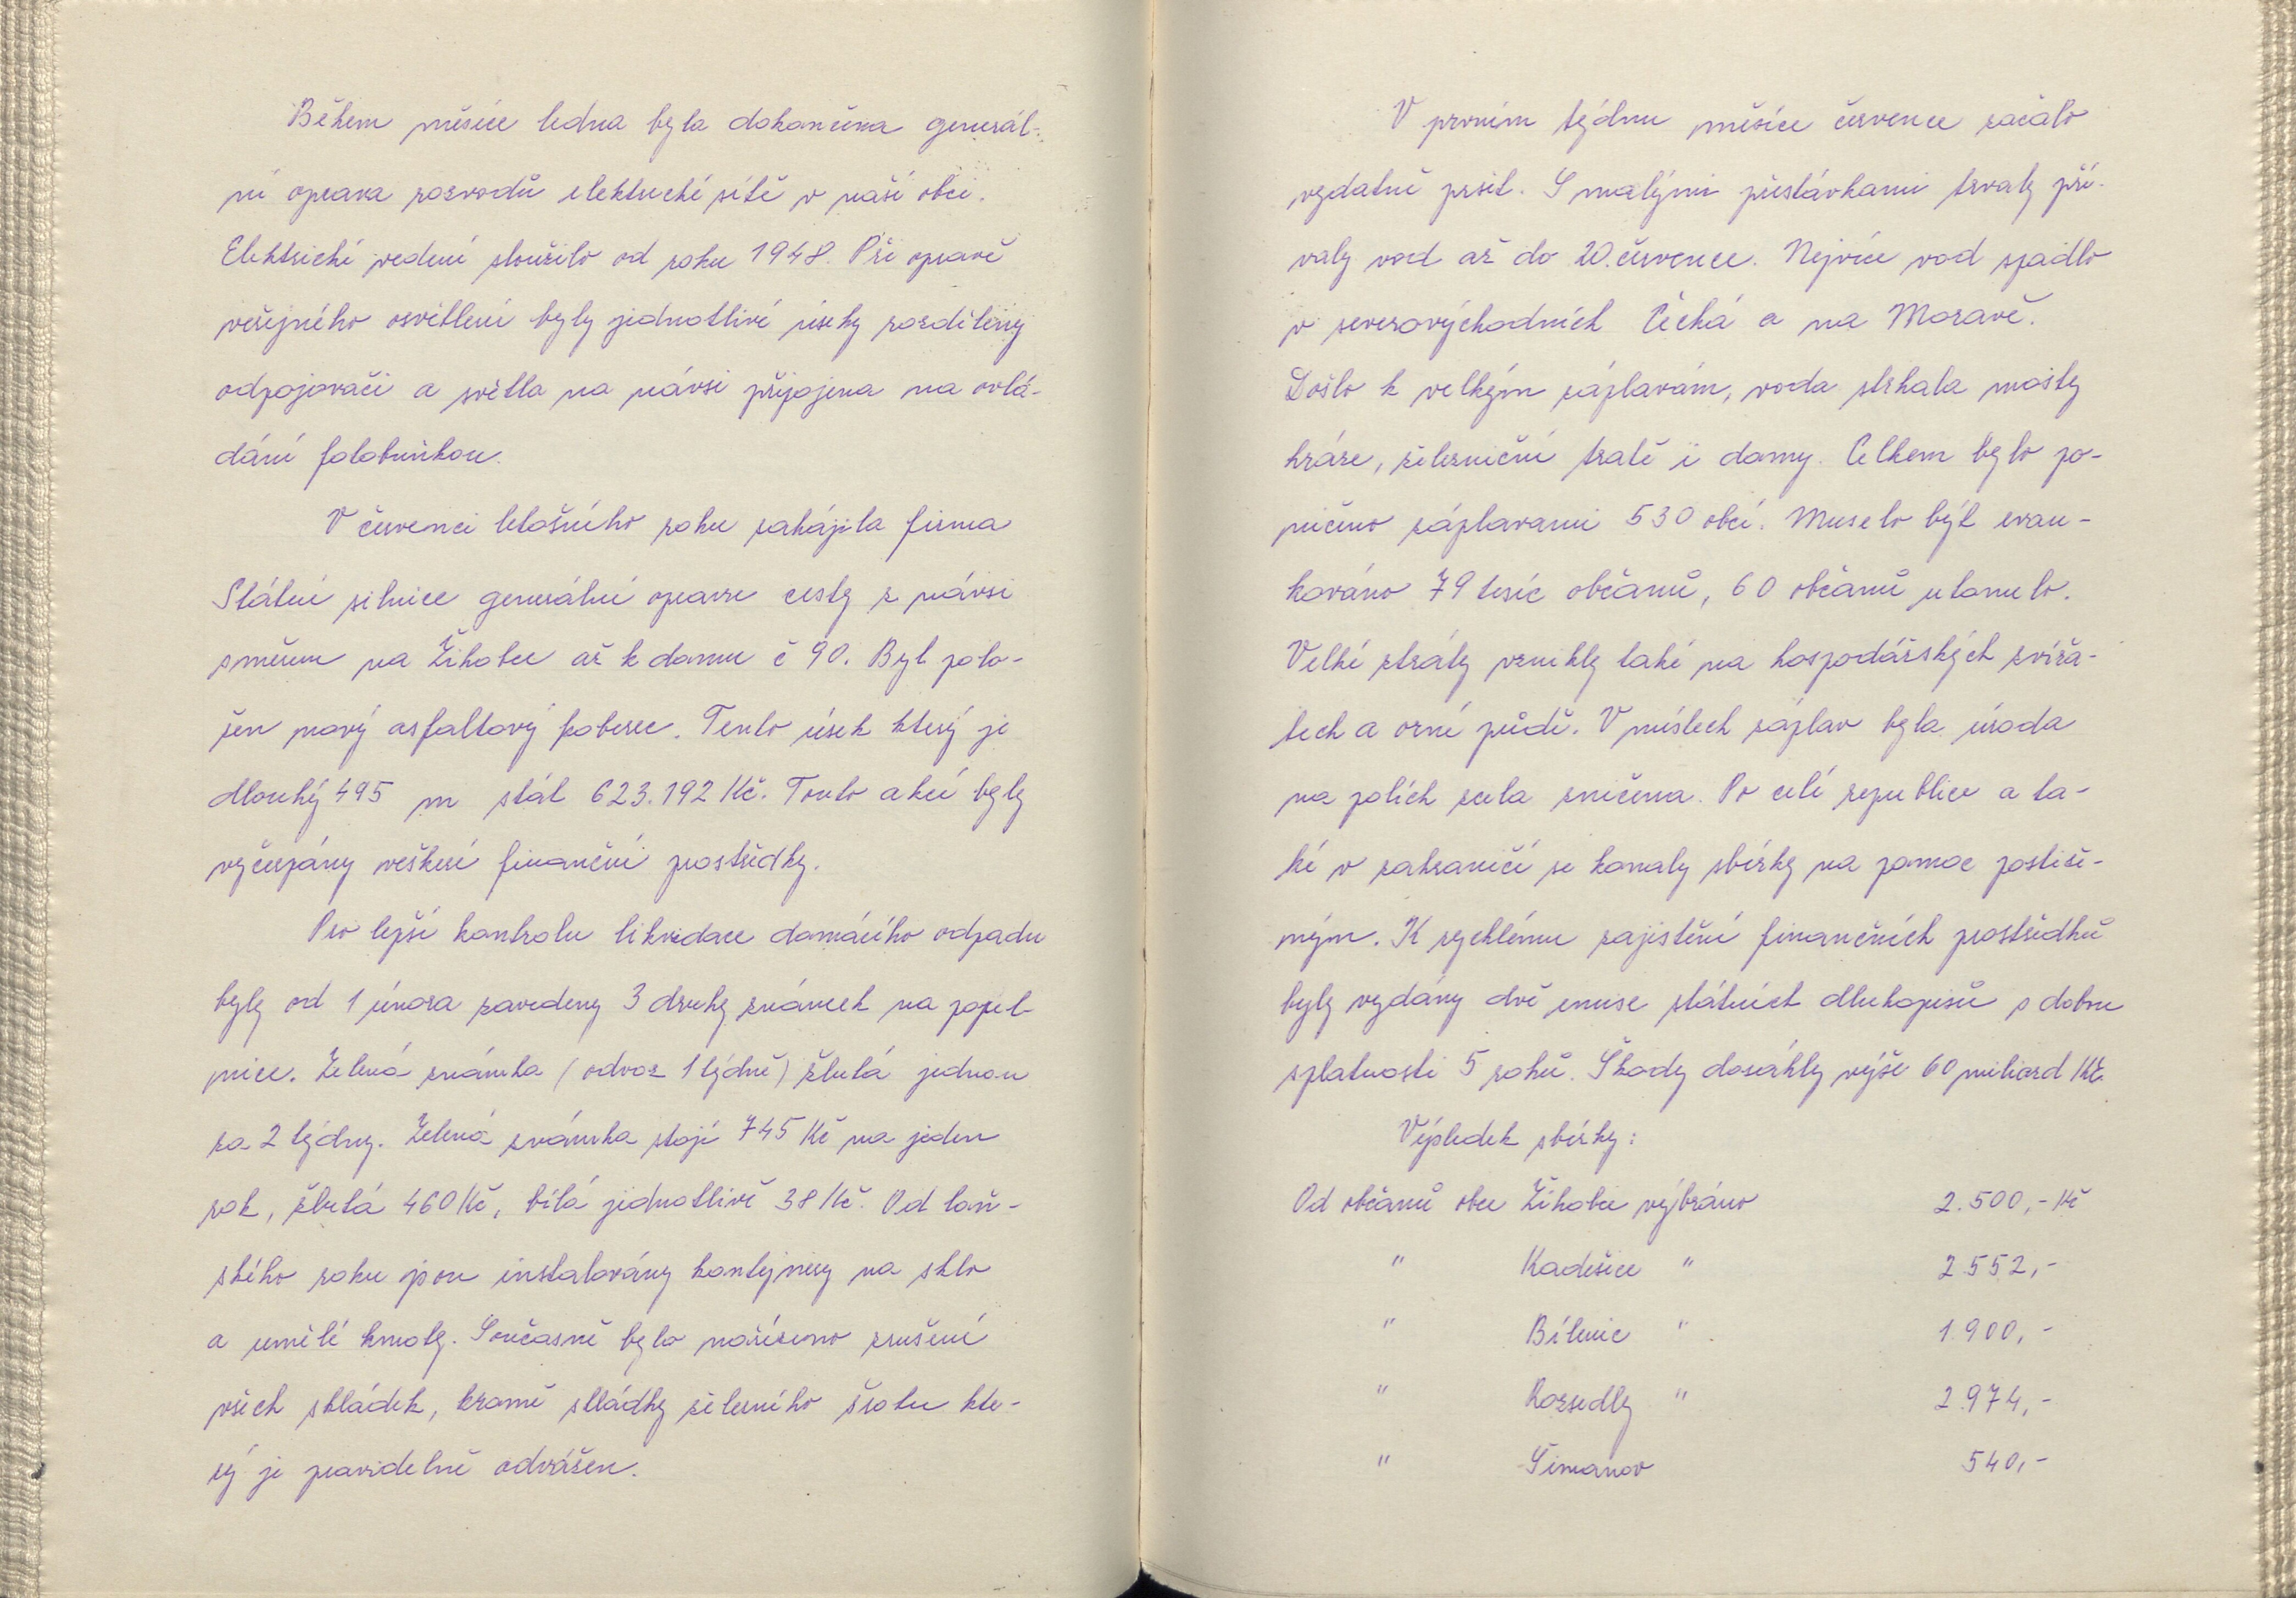 Během měsíce ledna byla dokončena generál-
ní oprava rozvodů elektrické sítě v naší obci.
Elektrické vedení sloužilo od roku 1948. Při opravě
veřejného osvětlení byly jednotlivé úseky rozděleny
odpojovači a světla na návsi připojena na ovlá-
dání fotobuňkou.
V červenci letošního roku zahájila firma
Státní silnice generální opravu cesty z návsi
směrem na Žihobce až k domu č 90. Byl polo-
žen nový asfaltový koberec. Tento úsek který je
dlouhý 495 m stál 623.192 Kč. Touto akcí byly
vyčerpány veškeré finanční prostředky.
Pro lepší kontrolu likvidace domácího odpadu
byly od 1 února zavedeny 3 druhy známek na popel-
nice. Zelená známka (odvoz 1 týdně) žlutá jednou
za 2 týdny. Zelená známka stojí 745 Kč na jeden
rok, žlutá 460 Kč, bílá jednotlivě 38 Kč. Od loň-
ského roku jsou instalovány kontejnery na sklo
a umělé hmoty. Současně bylo nařízeno zrušení
všech skládek, kromě skládky železného šrotu kte-
rý je pravidelně odvážen.
V prvním týdnu měsíce července začalo
vydatně pršet. S malými přestávkami trvaly pří-
valy vod až do 20. července. Nejvíce vod spadlo
v severovýchodních Čechá a na Moravě.
Došlo k velkým záplavám, voda strhala mosty
hráze, železniční tratě i domy. Celkem bylo po-
ničeno záplavami 530 obcí. Muselo být evau-
kováno 79 tisíc občanů, 60 občanů utonulo.
Velké ztráty vznikly také na hospodářských zvířa-
tech a orné půdě. V místech záplav byla úroda
na polích zcela zničena. Po celé republice a ta-
ké v zahraničí se konaly sbírky na pomoc postiže-
ným. K rychlému zajistění finančních prostředků
byly vydány dvě emise státních dluhopisů s dobou
splatnosti 5 roků. Škody dosáhly výše 60 miliard Kč.
Výsledek sbírky:
Od občanů obce Žihobce vybráno 2.500,- Kč
" Kadešice " 2552,-
" Bílenic " 1.900,-
" Rozsedly " 2974,-
" Šimanov 540,-